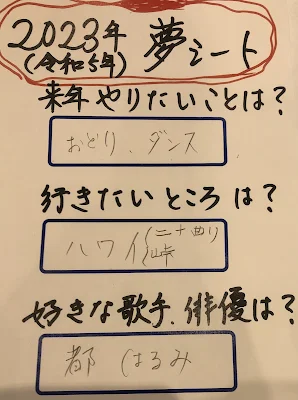 2023年
(令和5年)
夢シート
来年やりたいことは?
おどり、ダンス
行きたいところは?
ハワイ
二十曲り
峠
好きな歌手、俳優は?
都はるみ